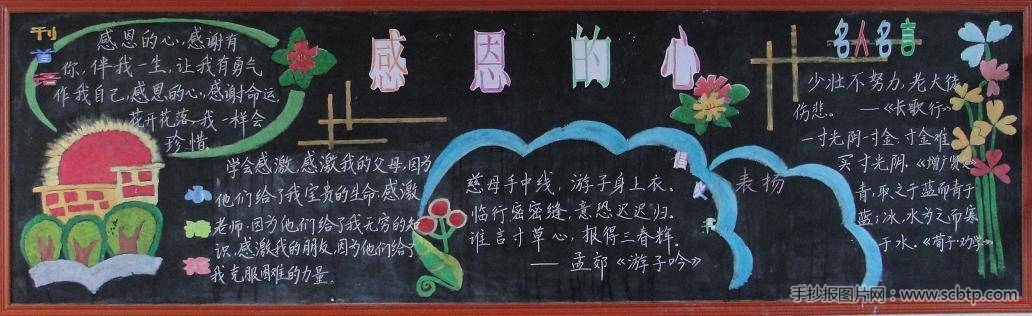 感恩的心
刊首语
感恩的心,感谢有
你,伴我一生,让我有勇气
作我自己,感恩的心,感谢命运,
花开花落,我一样会
珍惜.
学会感激,感激我的父母,因为
他们给了我宝贵的生命,感激
老师,因为他们给了我无穷的知
识,感激我的朋友,因为他们给了
我克服困难的力量。
慈母手中线,游子身上衣。
临行密密缝,意恐迟迟归。
谁言寸草心,报得三春晖。
——孟郊《游子吟》
表扬
名人名言
少壮不努力,老大徒
伤悲。——《长歌行》
一寸光阴一寸金,寸金难
买寸光阴。《增广贤文》
青,取之于蓝而青于
蓝;冰,水为之而寒
于水。《荀子·劝学》
手抄报图片网:www.scbtp.com